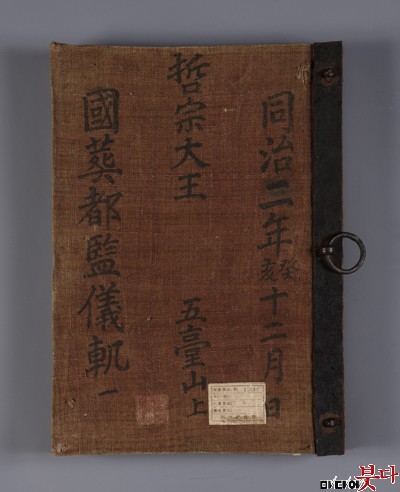 同治二年癸亥十二月 日
哲宗大王 五臺山上
國葬都監儀軌 一
미디어붓다